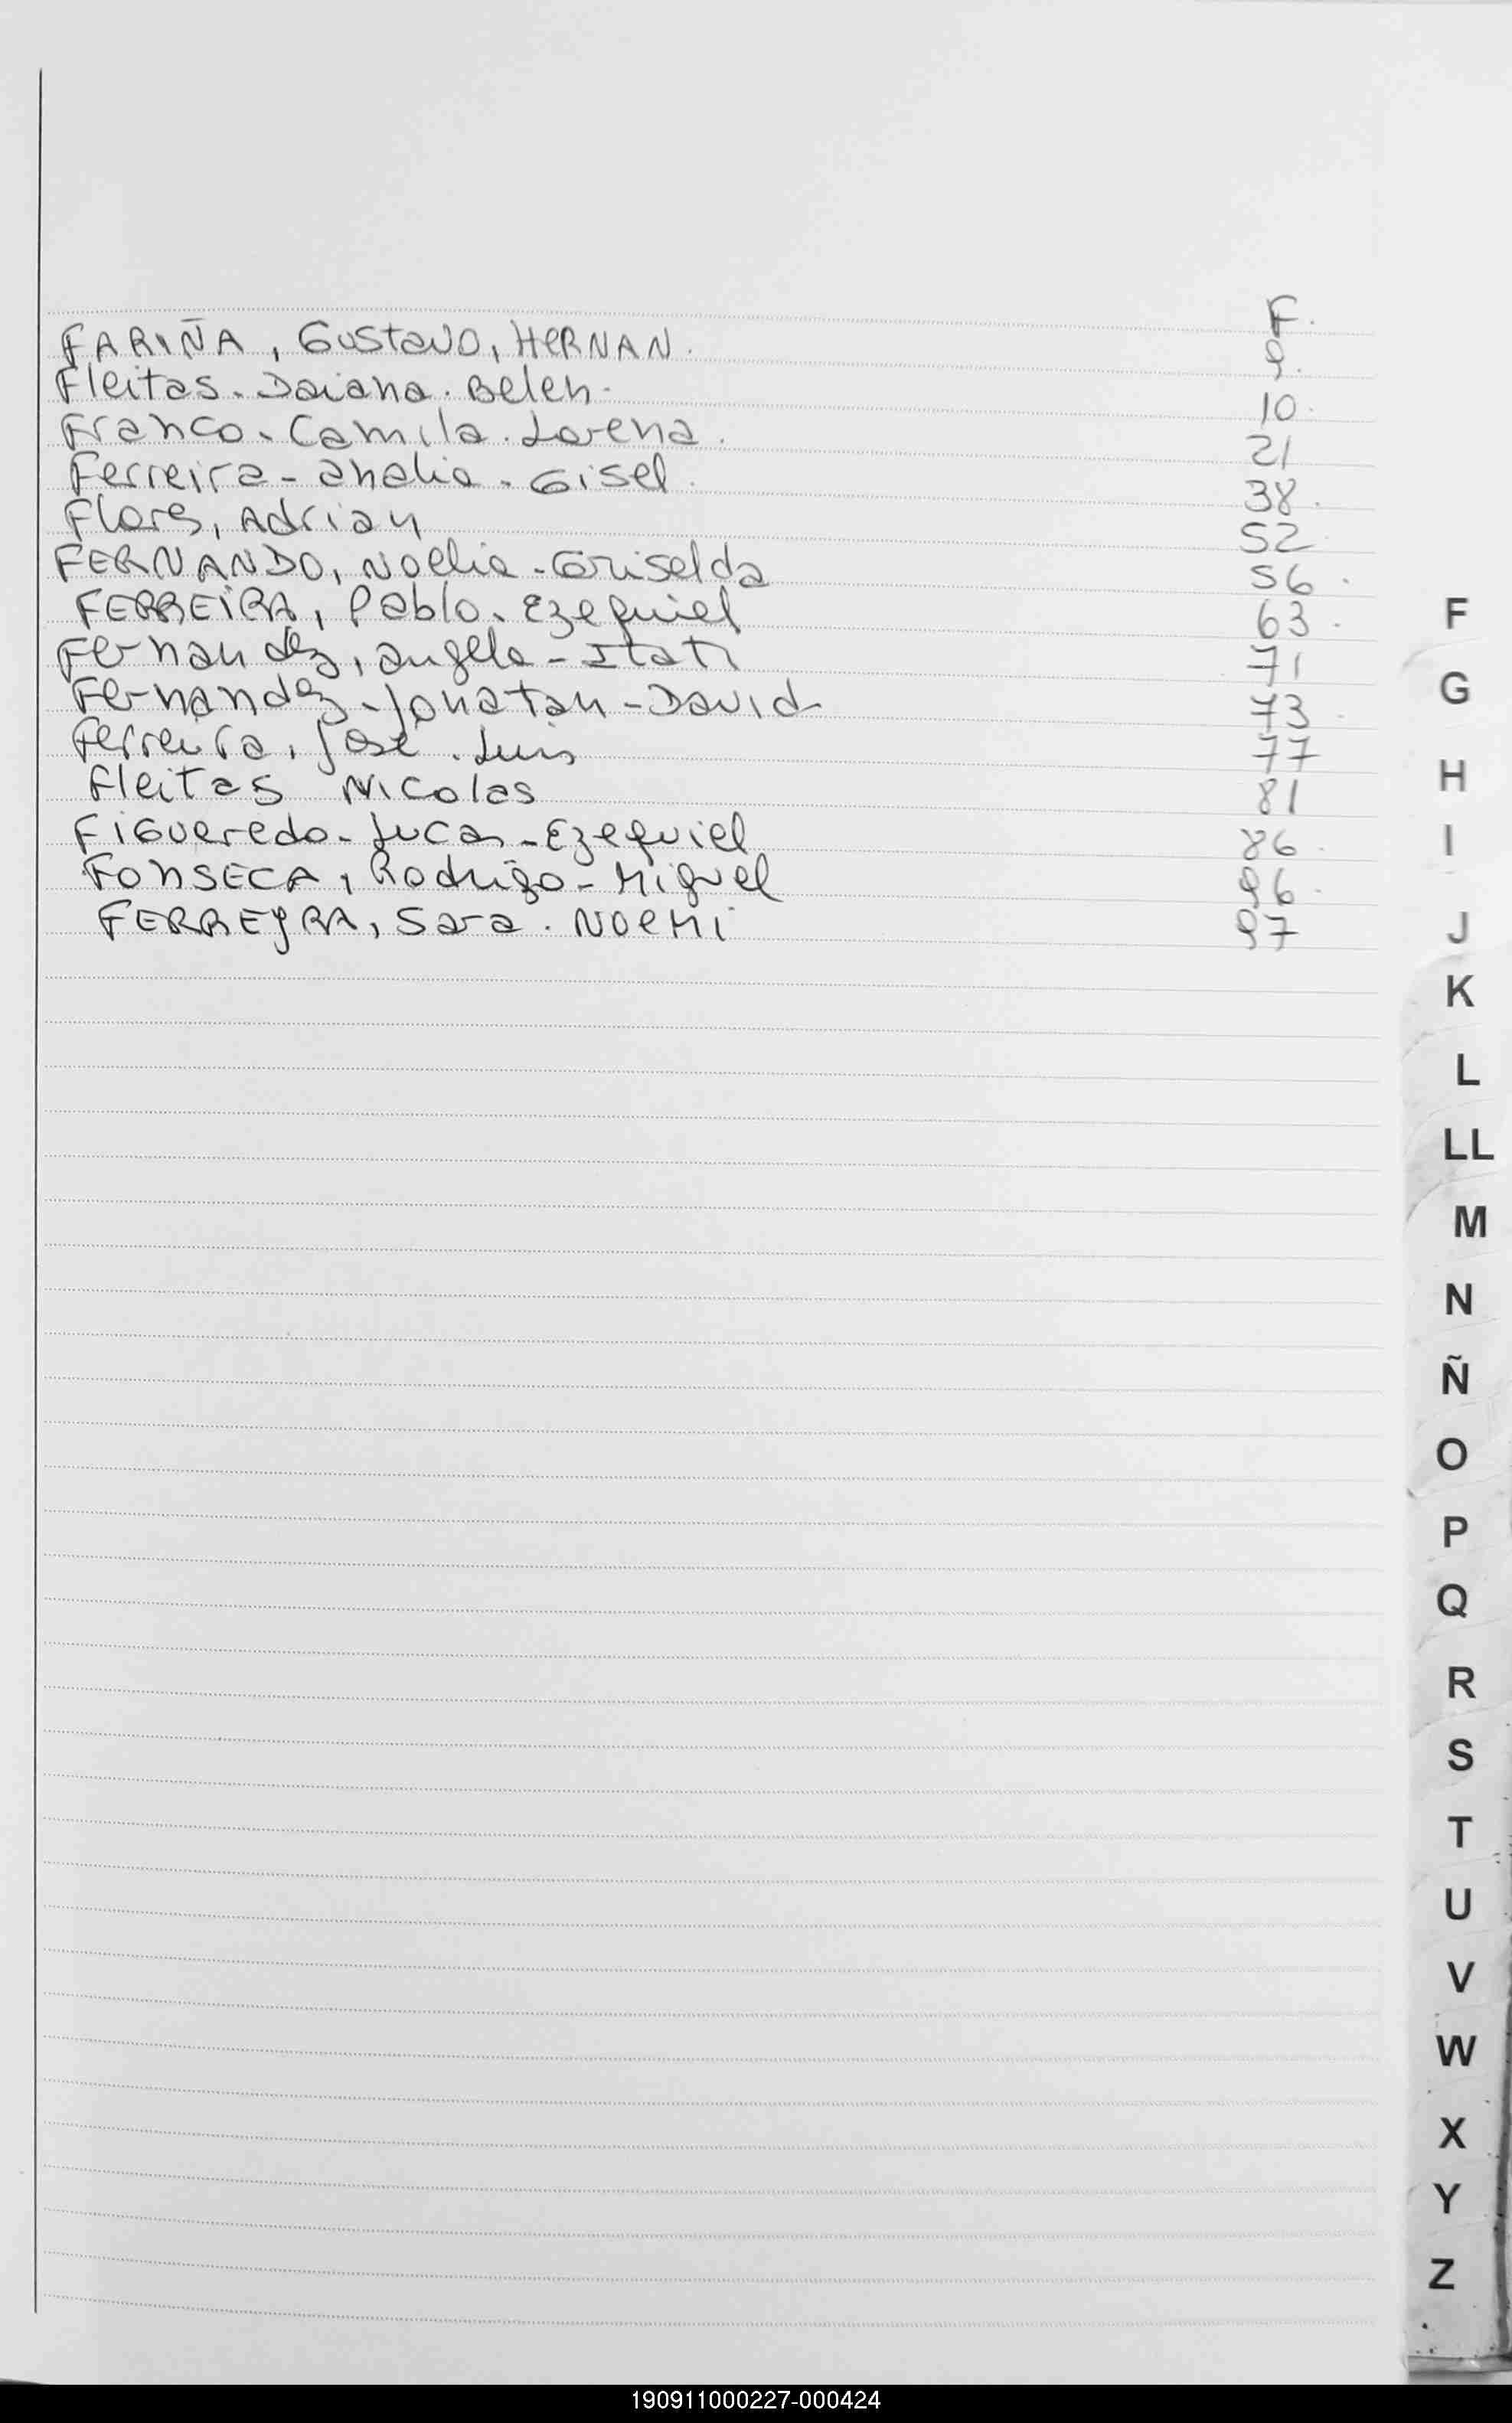 F.
FARIÑA, Gustavo, HERNAN. 9.
Fleitas. Daiana. Belen. 10.
Franco. Camila. Lorena. 21
Ferreira - analia. Gisel. 38.
Flores, Adrian 52
FERNANDO, Noelia - Griselda 56.
FERREIRA, Pablo. Ezequiel 63.
Fernandez, angela - Itati 71
Fernandez - Jonatan - David 73.
Ferreira, José. Luis 77
Fleitas Nicolas 81
Figueredo - Lucas - Ezequiel 86.
FONSECA, Rodrigo - Miguel 96.
FERREYRA, Sara. NOEMI 97
F
G
H
I
J
K
L
LL
M
N
Ñ
O
P
Q
R
S
T
U
V
W
X
Y
Z
190911000227-000424